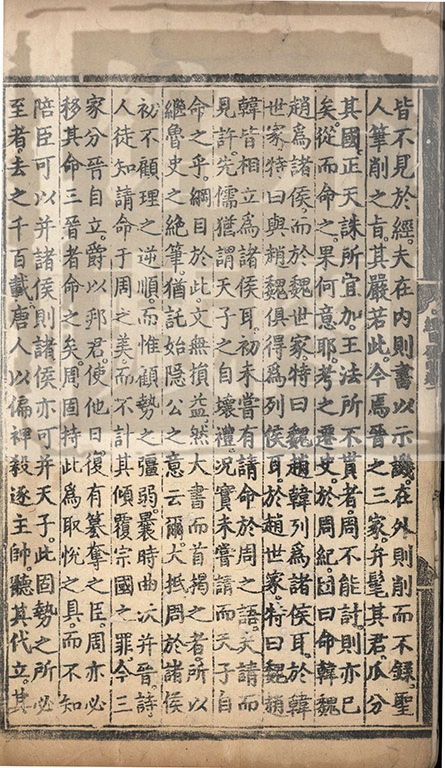 皆不見於經。夫在內則書以示譏。在外則削而不錄。聖
人筆削之旨。其嚴若此。今焉晉之三家。弁髦其君。瓜分
其國。正天誅所宜加。王法所不貰者。周不能討。則亦已
矣。從而命之。果何意耶。考之遷史。於周紀。因曰命韓魏
趙爲諸侯。而於魏世家。特曰魏趙韓列爲諸侯耳。於韓
世家。特曰與趙魏俱得爲列侯耳。於趙世家。特曰魏趙
韓皆相立爲諸侯耳。初未嘗有請命於周之語。夫請而
見許。先儒猶謂天子之自壞禮。况實未嘗請而天子自
命之乎。綱目於此。文無損益。然大書而首揭之者。所以
繼魯史之絶筆。猶託始隱公之意云爾。大抵周於諸侯
初不顧理之逆順。而惟顧勢之彊弱。曩時曲沃并晉。詩
人徒知請命于周之美。而不計其傾覆宗國之罪。今三
家分晉自立。爵以邦君。使他日復有簒奪之臣。周亦必
移其命三晉者命之矣。周固持此爲取悅之具。而不知
陪臣可以并諸侯。則諸侯亦可并天子。此固勢之所必
至者。去之千百載。唐人以偏裨殺逐主帥。聽其代立。其